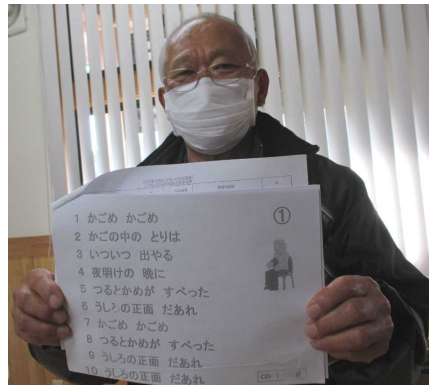 ①
1 かごめ かごめ
2 かごの中の とりは
3 いついつ 出やる
4 夜明けの 晩に
5 つるとかめが すべった
6 うしろの正面 だあれ
7 かごめ かごめ
8 つるとかめが すべった
9 うしろの正面 だあれ
10 うしろの正面 だあれ